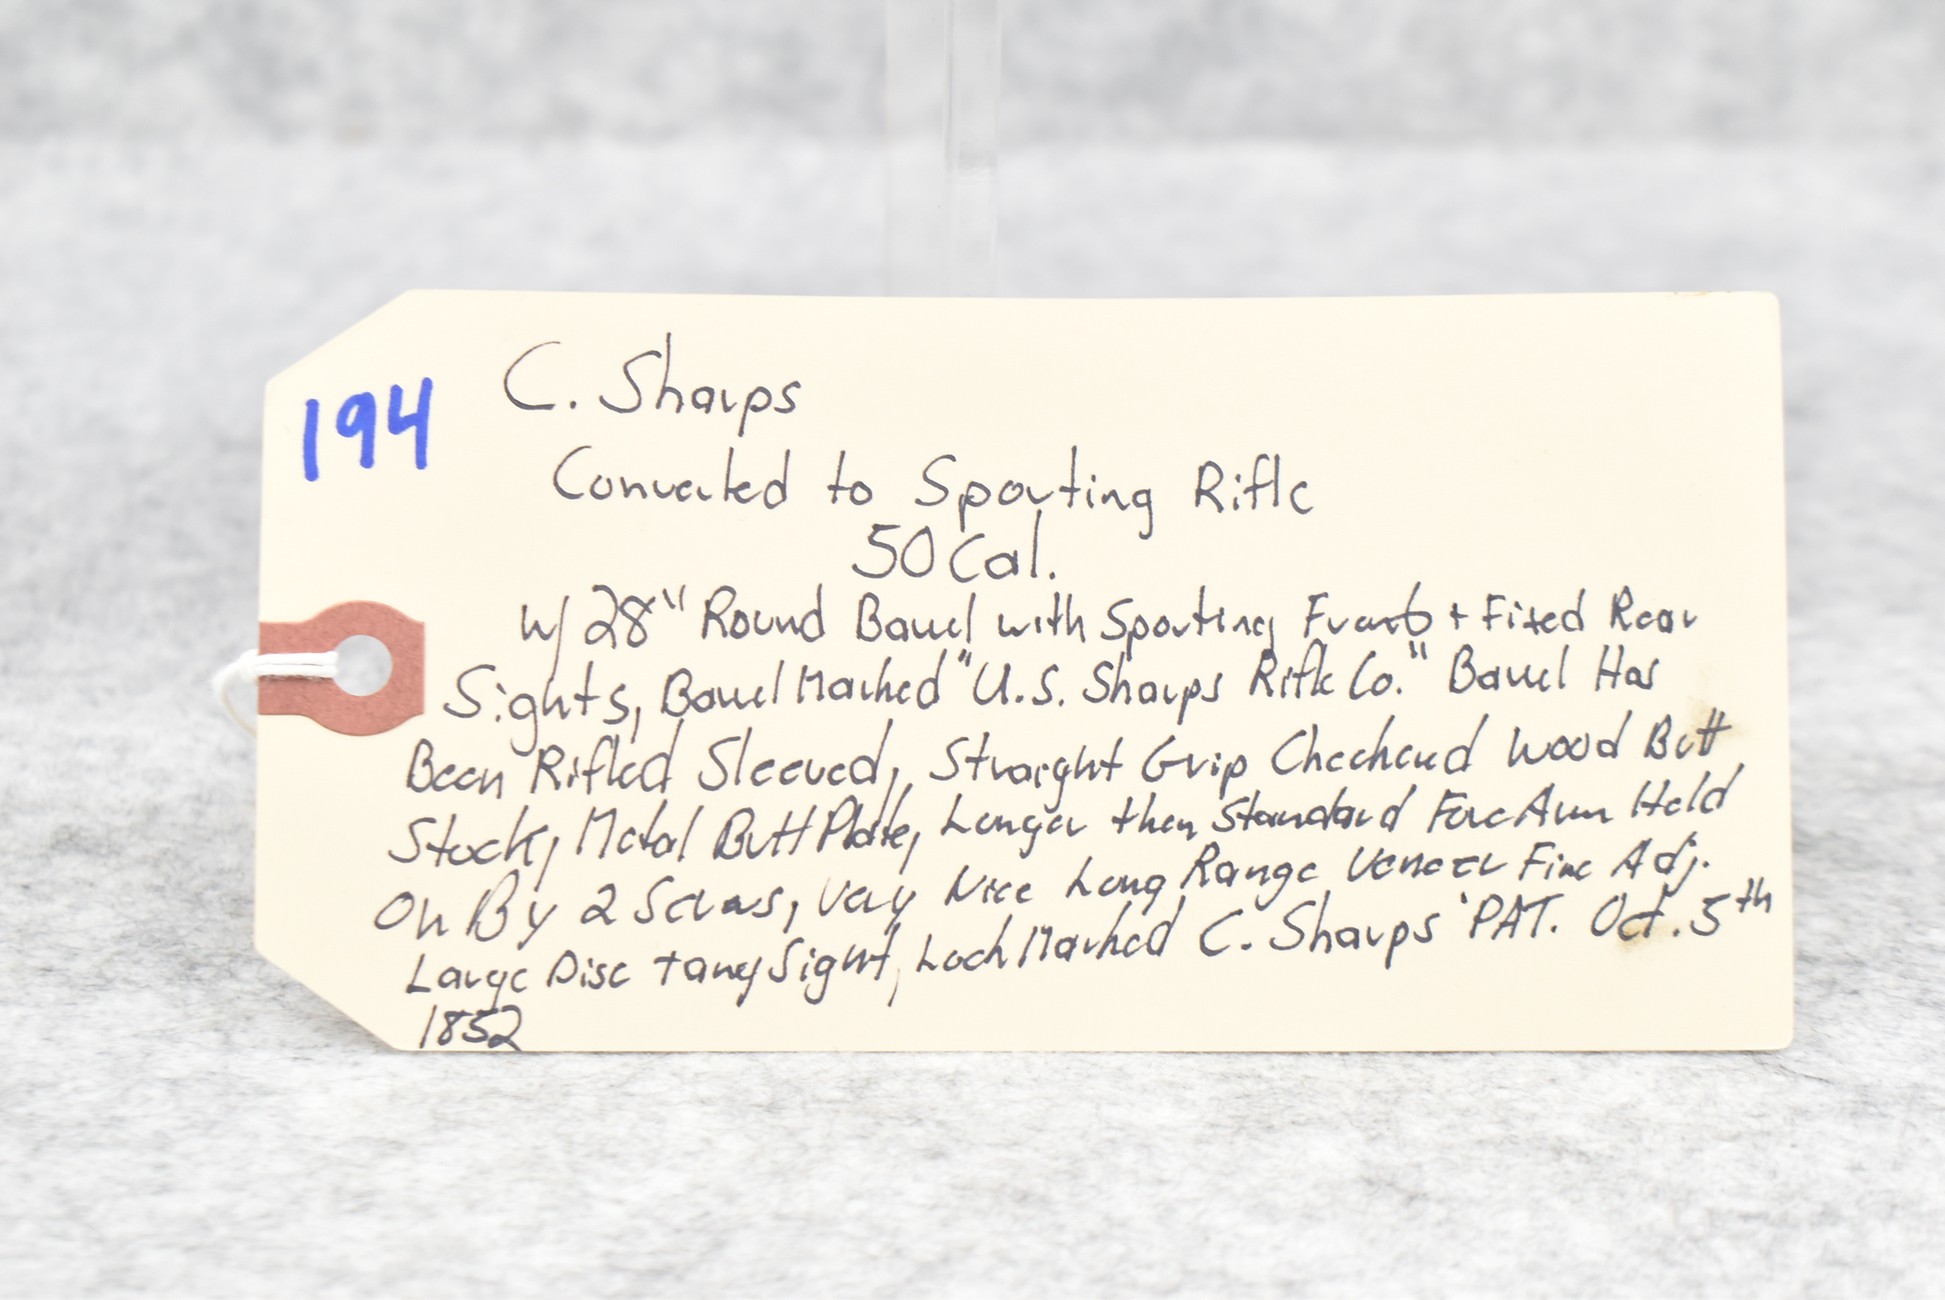 194
C. Sharps
Converted to Sporting Rifle
50 Cal.
w/ 28" Round Barrel with Sporting Front + Fixed Rear
Sights, Barrel Marked "U.S. Sharps Rifle Co." Barrel Has
Been Rifled Sleeved, Straight Grip Checkered Wood Butt
Stock, Metal Butt Plate, Longer then Standard ForeArm Held
On By 2 Screws, Very Nice Long Range Veneer Fine Adj.
Large Disc tang Sight, Lock Marked C. Sharps 'PAT. Oct. 5th
1852